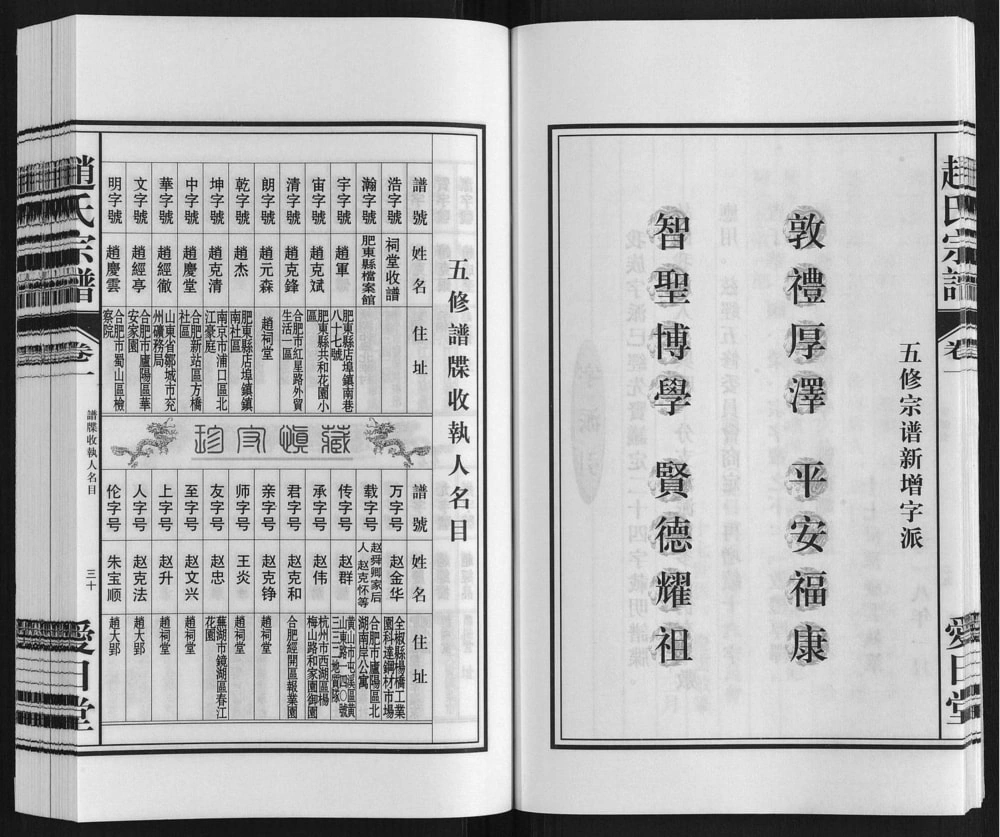 趙氏宗譜
卷一
愛日堂
五修宗谱新增字派
敦禮厚澤 平安福康
智聖博學 賢德耀祖
五修譜牒收執人名目
譜號 姓名 住址
浩字號 祠堂收譜
瀚字號 肥東縣檔案館
宇字號 趙軍 肥東縣店埠鎮南巷八十七號
宙字號 趙克斌 肥東縣共和花園小區
清字號 趙克鋒 合肥市紅星路外貿生活一區
朗字號 趙元森 趙祠堂
乾字號 趙杰 肥東縣店埠鎮鎮南社區
坤字號 趙克清 南京市浦口區北江豪庭
中字號 趙慶堂 合肥新站區方橋社區
華字號 趙經徹 山東省鄒城市兖州礦務局
文字號 趙經亭 合肥市廬陽區華安家園
明字號 趙慶雲 合肥市蜀山區檢察院
珍家慎藏
譜號 姓名 住址
万字号 赵金华 全椒縣楊橋工業園科達鋼材市場
载字号 赵舜卿家后人 赵克怀等 合肥市廬陽區北湖南岸公寓
传字号 赵群 黄山市屯溪區黄山東路一四〇號三三二地質隊
承字号 赵伟 杭州市西湖區楊梅山路和家園御園
君字号 赵克和 合肥經開區報業園
亲字号 赵克铮 趙祠堂
师字号 王炎 趙祠堂
友字号 赵忠 蕪湖市鏡湖區春江花園
至字号 赵文兴 趙祠堂
上字号 赵升 趙祠堂
人字号 赵克法 趙大郢
伦字号 朱宝顺 趙大郢
趙氏宗譜
卷一
譜牒收執人名目
三十
愛日堂